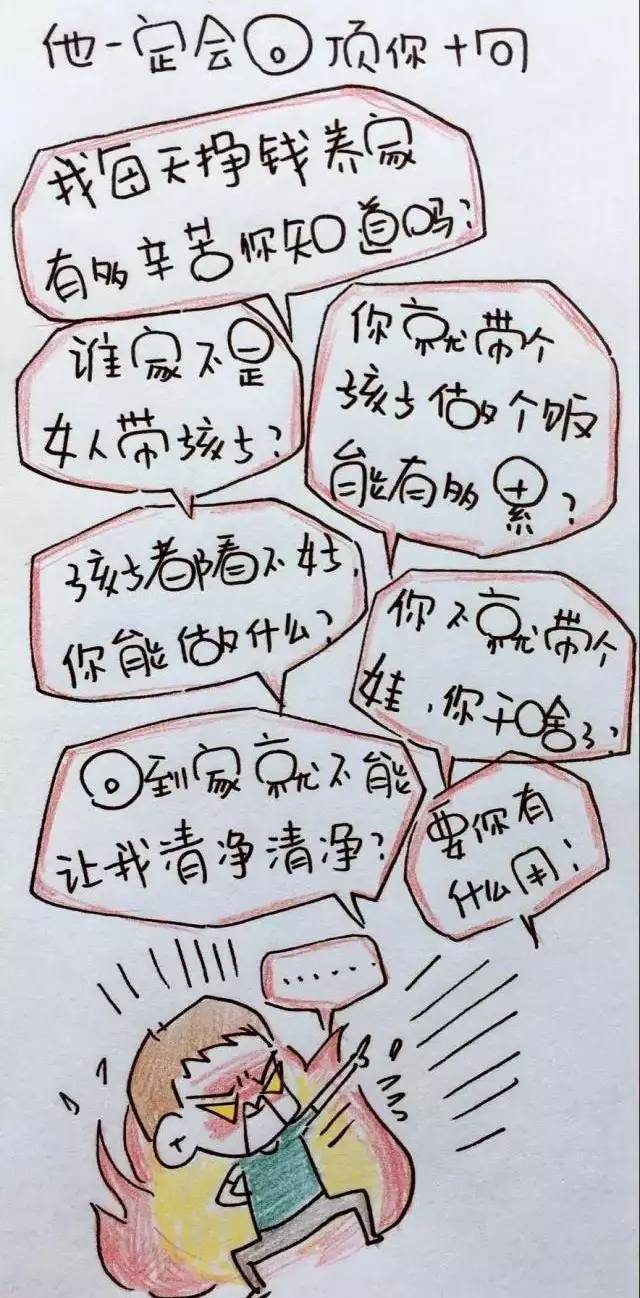 他一定会回顶你十句
我每天挣钱养家
有多辛苦你知道吗?
谁家不是
女人带孩子?
你就带个
孩子做个饭
能有多累?
孩子都看不好,
你能做什么?
你不就带个
娃,你干啥了?
回到家就不能
让我清净清净?
要你有
什么用?
......